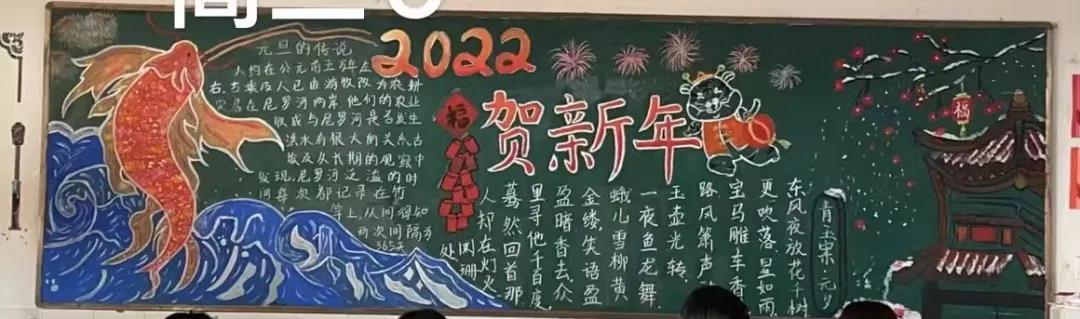 2022
贺新年
福
元旦的传说
大约在公元前五千年左
右,古埃及人已由游牧改为农耕
定居在尼罗河两岸 他们的农业
收成与尼罗河是否发生
洪水有很大的关系古
埃及从长期的观察中
发现,尼罗河泛滥的时
间每次都记录在竹
竿上,从间得知
两次间隔为
365天
福
青玉案·元夕
东风夜放花千树
更吹落星如雨
宝马雕车香
路风箫声
玉壶光转
一夜鱼龙舞
蛾儿雪柳黄
金缕笑语盈
盈暗香去众
里寻他千百度
蓦然回首那
人却在灯火
阑珊
处